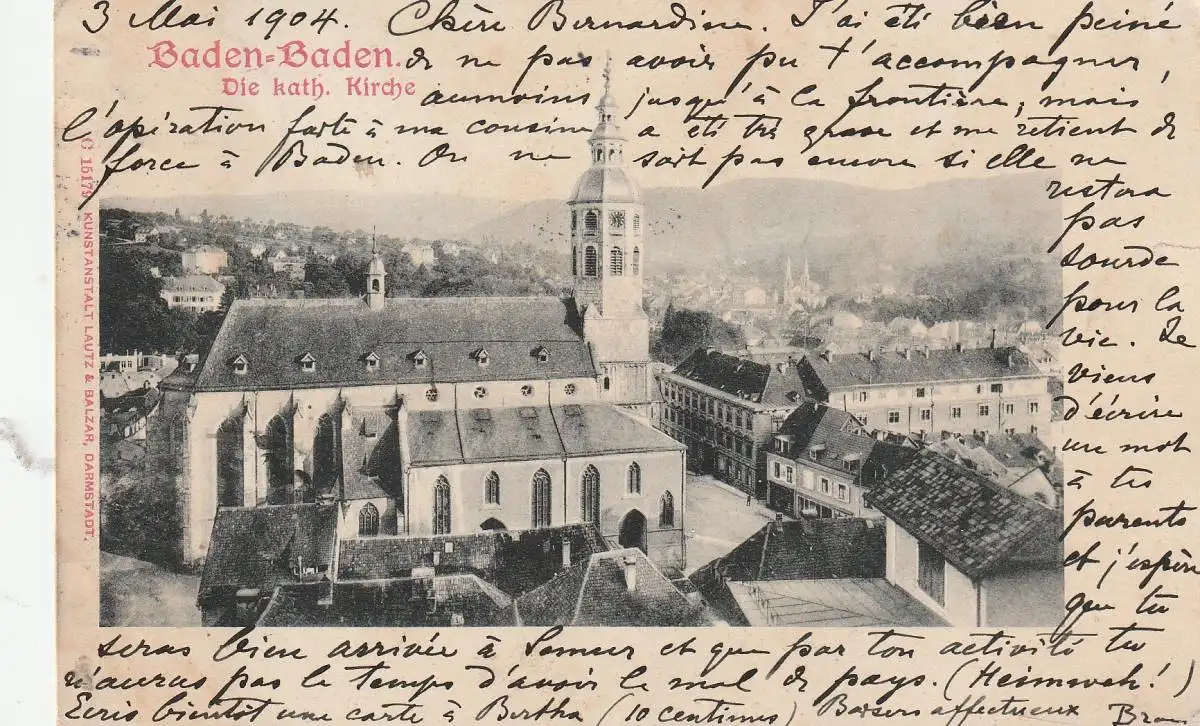 3 Mai 1904. Chère Bernardine. J'ai été bien peiné
Baden=Baden.
de ne pas avoir pu t'accompagner,
Die kath. Kirche
aumoins jusqu'à la frontière, mais
l'opération faite à ma cousine a été très grave et me retient de
force à Baden. On ne sait pas encore si elle ne
restera
pas
sourde
pour la
vie. Je
viens
d'écrire
un mot
à tes
parents
et j'espère
que tu
seras bien arrivée à Semeur et que par ton activité tu
n'auras pas le temps d'avoir le mal de pays. (Heimweh!)
Ecris bientôt une carte à Bertha (10 centimes) Baisers affectueux
C 15179 KUNSTANSTALT LAUTZ & BALZAR, DARMSTADT.